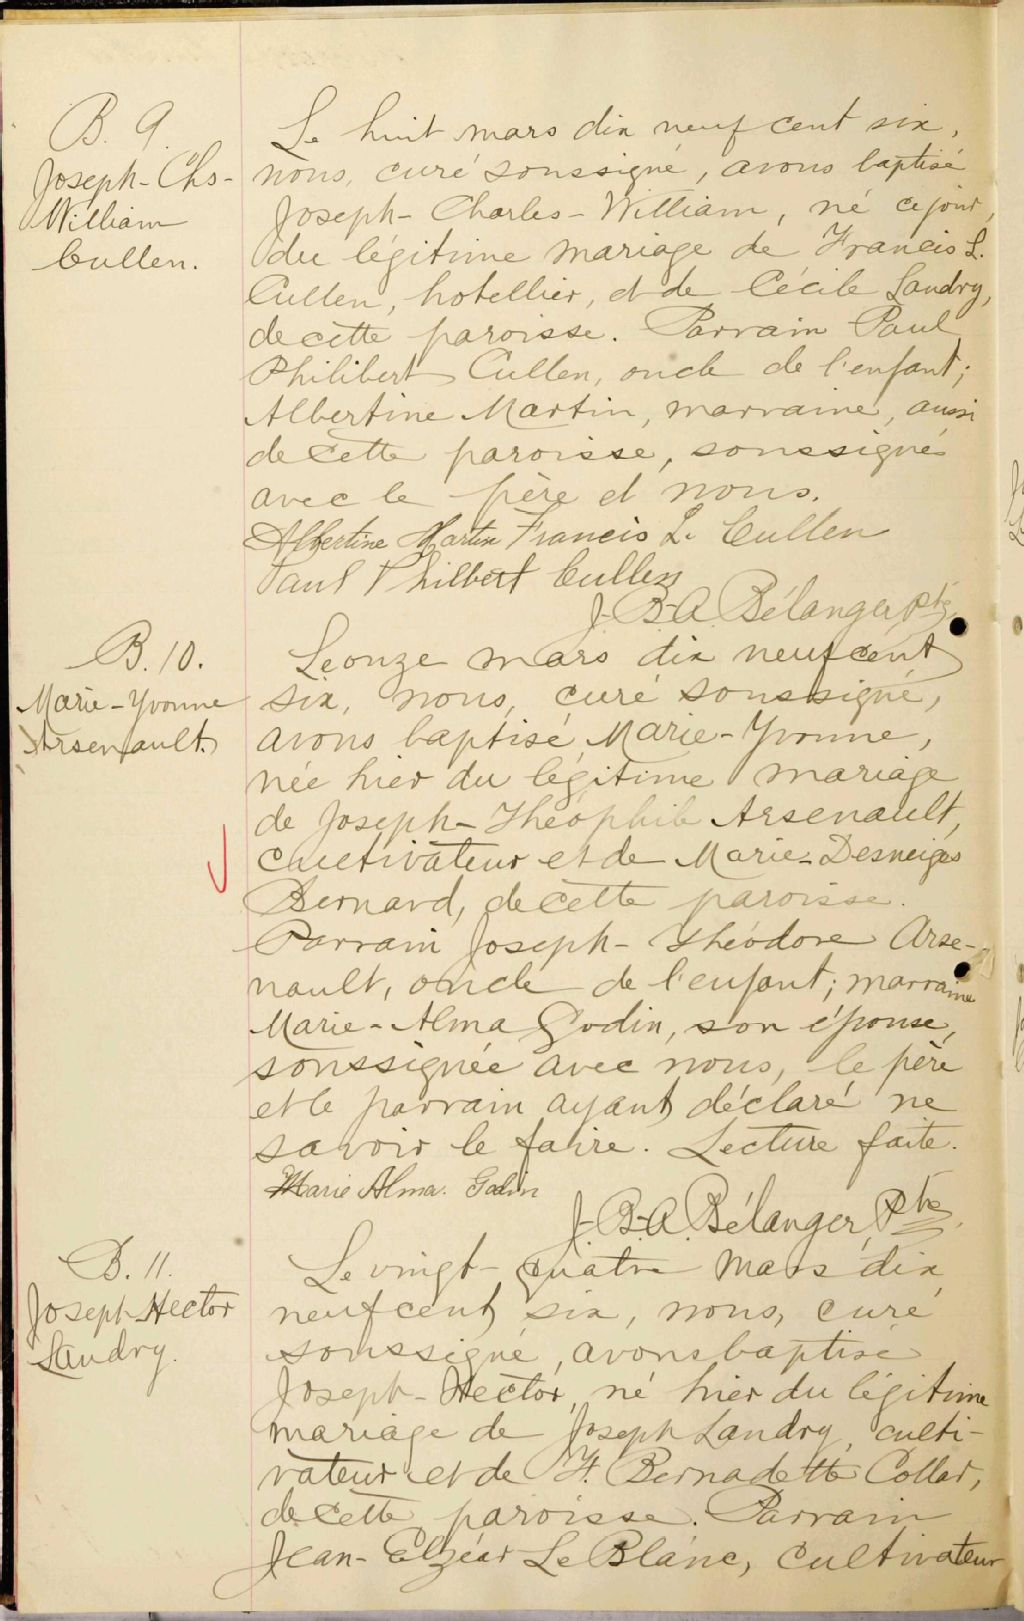 B. 9.
Joseph-Chs-
William
Cullen.
Le huit mars dix neuf cent six,
nous, curé soussigné, avons baptisé
Joseph-Charles-William, né ce jour,
du légitime mariage de Francis L.
Cullen, hotellier, et de Cécile Landry,
de cette paroisse. Parrain Paul
Philibert Cullen, oncle de l'enfant;
Albertine Martin, marraine, aussi
de cette paroisse, soussignés
avec le père et nous.
Albertine Martin Francis L. Cullen
Paul Philbert Cullen
J.-B.-A. Bélanger Ptre
B. 10.
Marie-Yvonne
Arsenault.
Le onze mars dix neuf cent
six, nous, curé soussigné,
avons baptisé Marie-Yvonne,
née hier du légitime mariage
de Joseph-Théophile Arsenault,
cultivateur et de Marie-Desneiges
Bernard, de cette paroisse.
Parrain Joseph-Théodore Arse-
nault, oncle de l'enfant; marraine
Marie-Alma Godin, son épouse,
soussignée avec nous, le père
et le parrain ayant déclaré ne
savoir le faire. Lecture faite.
Marie Alma. Godin
J.-B.-A. Bélanger, Ptre
B. 11.
Joseph-Hector
Landry.
Le vingt-quatre mars dix
neuf cent six, nous, curé
soussigné, avons baptisé
Joseph-Hector, né hier du légitime
mariage de Joseph Landry, culti-
vateur et de Bernadette
de cette paroisse. Parrain
Jean-Elzéar LeBlanc, cultivateur